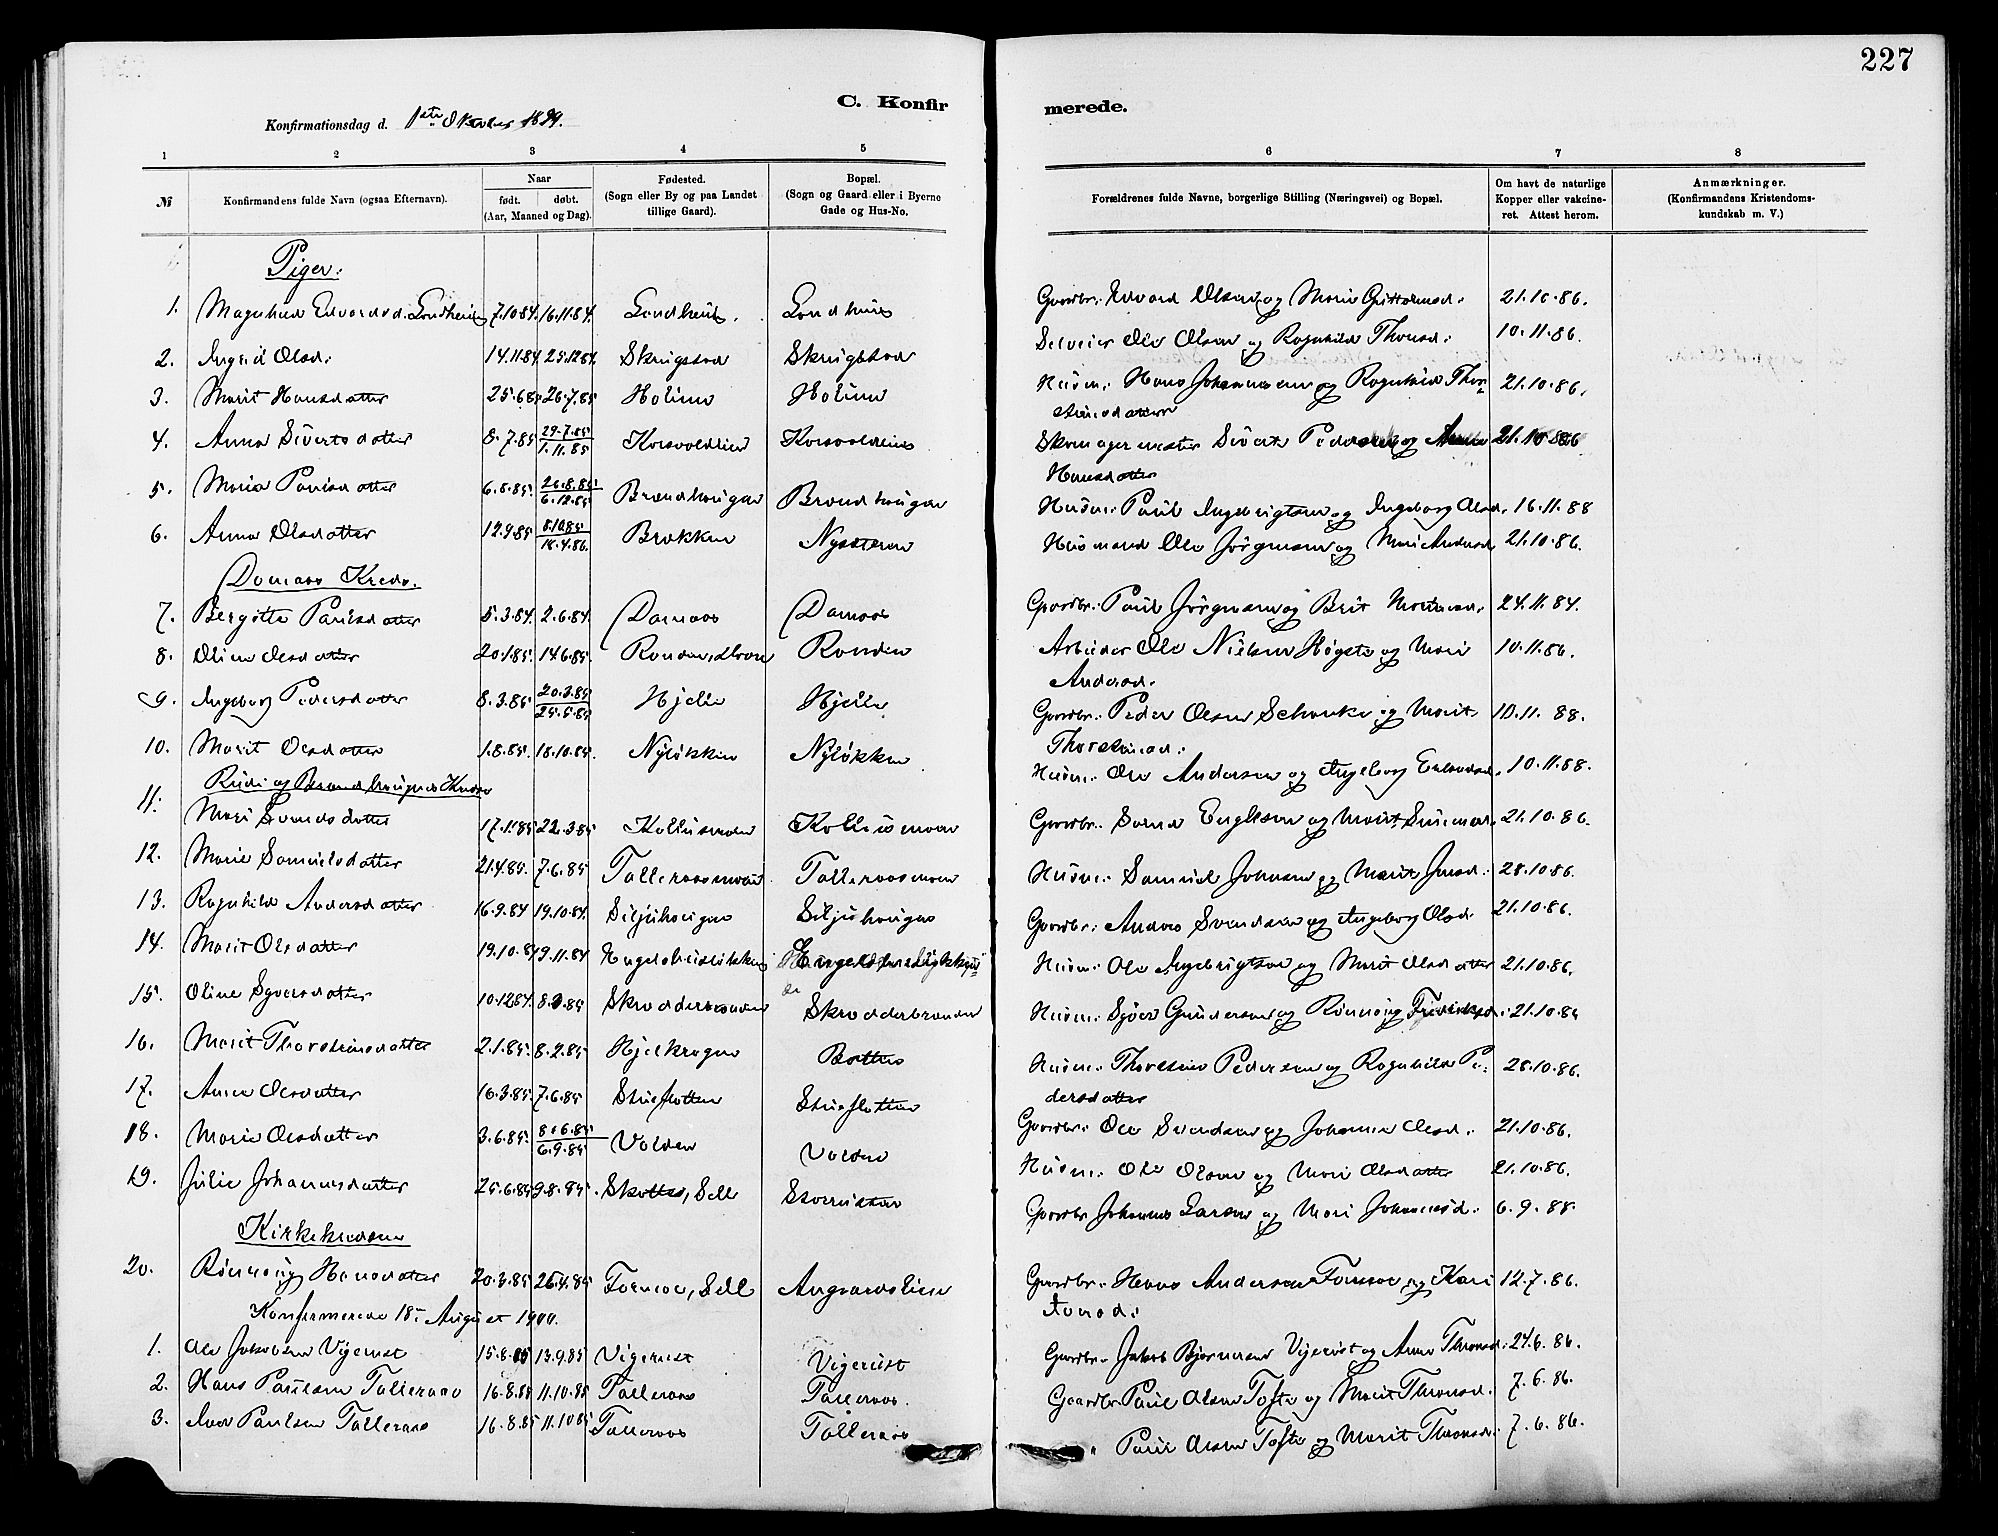 227
C. Konfirmerede.
Konfirmationsdag d. 1ste Oktober 1899.
1 2 3 4 5 6 7 8
№
Konfirmandens fulde Navn (ogsaa Efternavn).
Naar
født. døbt.
(Aar, Maaned og Dag).
Fødested.
(Sogn eller By og paa Landet
tillige Gaard).
Bopæl.
(Sogn og Gaard eller i Byerne
Gade og Hus-No.
Forældrenes fulde Navne, borgerlige Stilling (Næringsvei) og Bopæl.
Om havt de naturlige
Kopper eller vakcine-
ret. Attest herom.
Anmærkninger.
(Konfirmandens Kristendoms-
kundskab m. V.)
Piger:
1. Magnhild Edvardsd. 7.10.84. 16.11.84. Gaardbr: Edvard Olsen og Mari 21.10.86.
2. Ingrid Olsd: 14.11.84 25.12.84. Skrugstad Skrugstad Selveier Ole Olsen og Ragnhild Thorsd: 10.11.86.
3. Marit Hansdatter 25.6.85 26.7.85 Holien Holien Husm: Hans Johannesen og Ragnhild Thor- 21.10.86.
steinsdatter
4. Anna Sivertsdatter 8.7.85 29.7.85 1.11.85 Korsvoldlien Korsvoldlien Skomagermester Sivert Pedersen og Anne 21.10.86
Hansdatter
5. Maria Paulsdatter 6.8.85. 26.8.85 6.12.85 Brandhougen Brandhougen Husm: Paul Ingebrigtsen og Ingeborg Olsd. 16.11.88
6. Anna Olsdatter 12.9.85 8.10.85 18.4.86. Brekken Nysæteren Husmand Ole Jørgensen og Mari Andersd. 21.10.86.
Damaas Kreds.
7. Bergitte Paulsdatter 5.3.84. 2.6.84. Damaas Damaas Gaardbr: Paul Jørgensen og Brit 24.11.84.
8. Oline Olsdatter 20.1.85. 14.6.85. Randen Randen Arbeider Ole Nielsen Høgste og Mari 10.11.86.
Andersd.
9. Ingeborg Pedersdatter 8.3.85 20.3.85 25.5.85 Hjelle Hjelle Gaardbr: Peder Olsen Schanke og Marit 10.11.88.
Thorsteinsd:
10. Marit Olsdatter 1.8.85. 18.10.85. Nyløkken Nyløkken Husm: Ole Andersen og Ingeborg Erlandsd. 10.11.88.
Rudi og Brandhougens Kreds
11. Mari Svendsdatter 17.1.85 22.3.85 Kollusmoen Kollusmoen Gaardbr: Svend Engelsen og Marit Simensd. 21.10.86.
12. Marie Samuelsdatter 21.4.85. 7.6.85 Talleraasmoen Talleraasmoen Husm: Samuel Johnsen og Marit Jensd: 28.10.86.
13. Ragnhild Andersdatter 16.9.84 19.10.84. Siljuhougen Siljuhougen Gaardbr: Anders Svendsen og Ingeborg Olsd. 21.10.86.
14. Marit Olsdatter 19.10.84 9.11.84 Husm: Ole Ingebrigtsen og Marit Olsdatter 21.10.86.
15. Oline Syversdatter 10.12.84. 8.3.85 Skredderbranden Skredderbranden Husm: Syver Gundersen og Rønnaug Fredriksd: 21.10.86
16. Marit Thorsteinsdatter 2.1.85. 8.2.85 Hjelkrogen Husm: Thorstein Pedersen og Ragnhild Pe- 28.10.86.
dersdatter
17. Anne Olsdatter 16.3.85. 7.6.85 Stueflotten Stueflotten Gaardbr: Ole Svendsen og Johanne Olsd: 21.10.86.
18. Marie Olsdatter 3.6.85. 8.6.85. 6.9.85 Volden Volden Husm: Ole Olsen og Mari Olsdatter 21.10.86.
19. Julie Johannesdatter 25.6.85 9.8.85. Skottes, Sell Gaardbr Johannes Larsen og Mari Johannesd: 6.9.88.
Kirkekredsen
20. Rønnaug Hansdatter 20.3.85 26.4.85 Formoe, Sell Angaardslien Gaardbr: Hans Andersen Formoe og Kari 12.7.86.
Iversd:
Konfirmerede 18: August 1900.
1. Ole Jakobsen Vigerust 15.8.85 13.9.85 Vigerust Vigerust Gaardbr. Jakob Bjørnsen Vigerust og Anne Thronsd: 24.6.86.
2. Hans Paulsen Talleraas 16.8.85 11.10.85 Talleraas Talleraas. Gaardbr Paul Olsen Tofte og Marit Thronsd. 7.6.86.
3. Iver Paulsen Talleraas 16.8.85 11.10.85 Talleraas Talleraas " Paul Olsen Tofte og Marit Thronsd: 7.6.86.